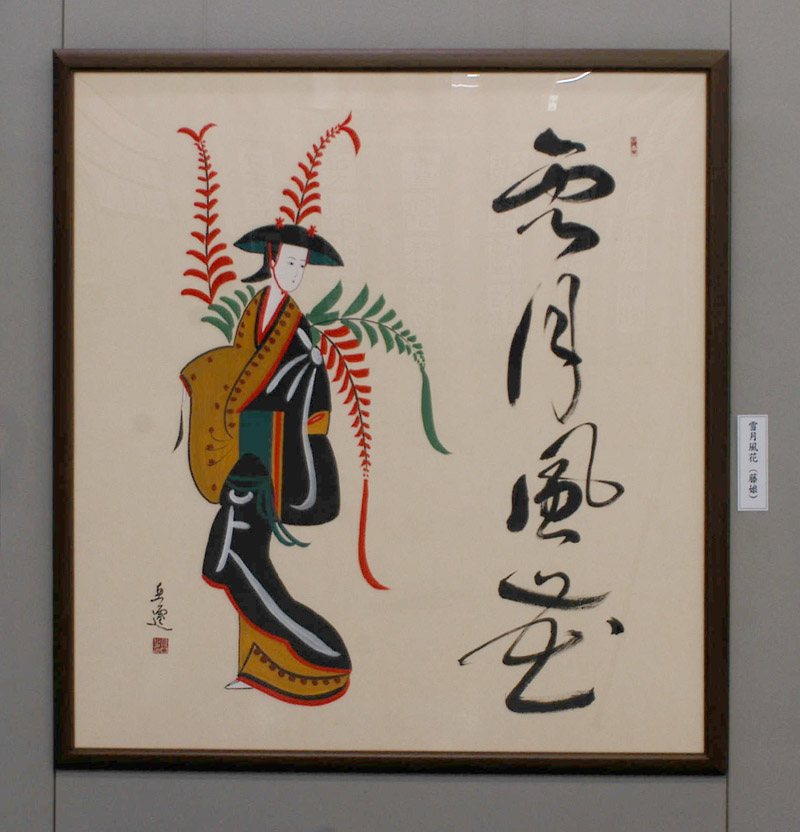 雪月風花
雪月風花(藤娘)